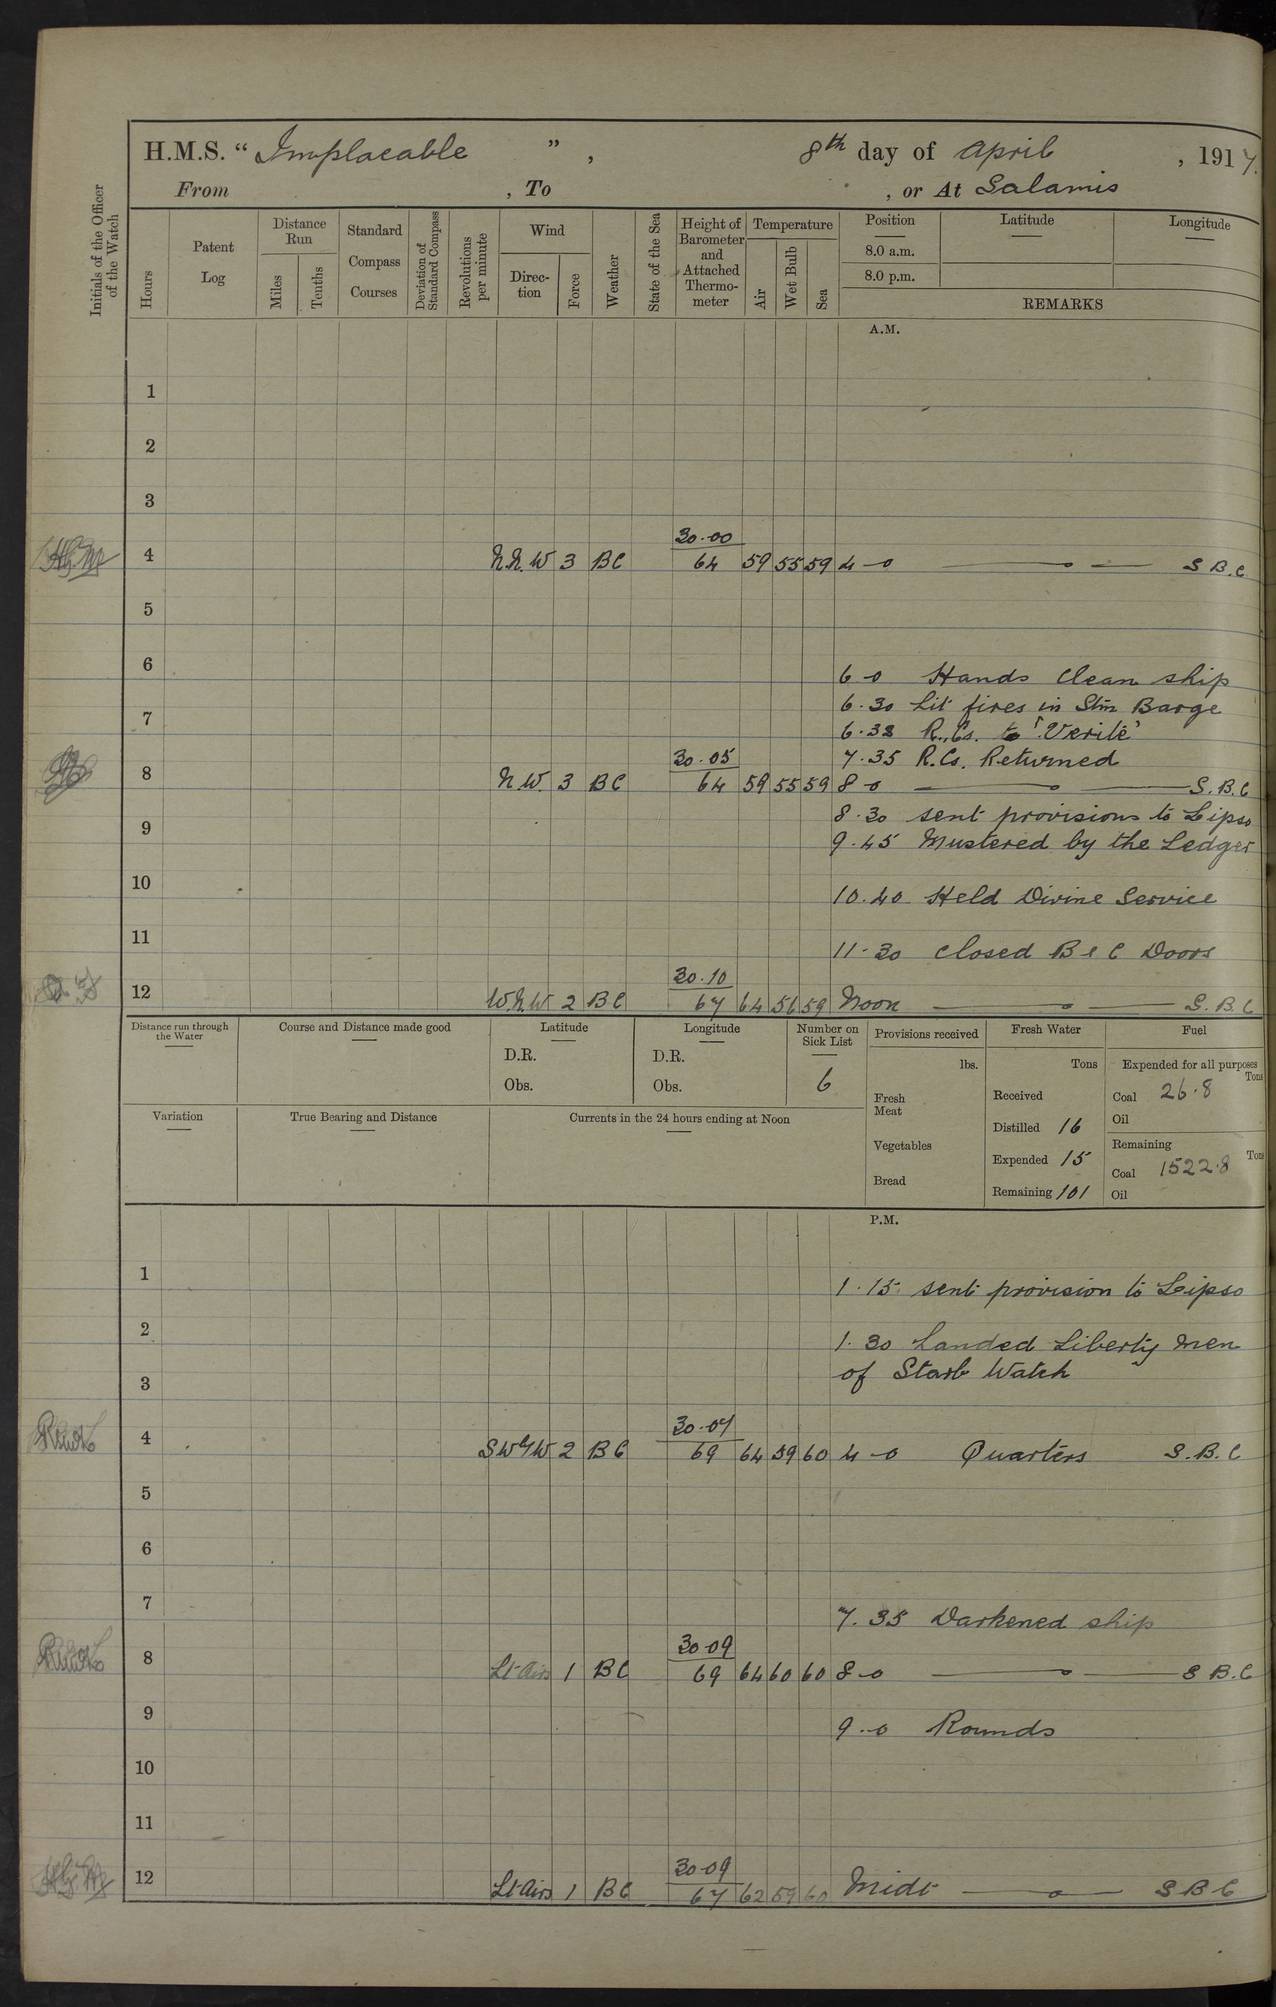 H.M.S. “ Implacable ” , 8th day of April , 1917.
From , To , or At Salamis
Initials of the Officer of the Watch
Hours
Patent Log
Distance Run
Miles
Tenths
Standard Compass Courses
Deviation of Standard Compass
Revolutions per minute
Wind
Direc-tion
Force
Weather
State of the Sea
Height of Barometer and Attached Thermo-meter
Temperature
Air
Wet Bulb
Sea
Position
8.0 a.m.
8.0 p.m.
Latitude
Longitude
REMARKS
A.M.
1
2
3
30.00
4 N.N.W 3 BC 64 59 55 59 4-0 S.B.C
5
6
6-0 Hands clean ship
6.30 Lit fires in Stm Barge
7
6.32 R.Cs. to 'Verite'
30.05 7.35 R.Cs. Returned
8 N.W. 3 BC 64 59 55 59 8-0 S.B.C
8.30 sent provisions to Lipso
9
9.45 Mustered by the Ledger
10
10.40 Held Divine Service
11
11.30 closed B & C Doors
30.10
12 W.N.W 2 BC 67 64 56 59 Noon S.B.C
Distance run through the Water
Course and Distance made good
Latitude
D.R.
Obs.
Longitude
D.R.
Obs.
Number on Sick List
6
Provisions received
lbs.
Fresh Meat
Vegetables
Bread
Fresh Water
Tons
Received
Distilled 16
Expended 15
Remaining 101
Fuel
Expended for all purposes
Tons
Coal 26.8
Oil
Remaining
Tons
Coal 1522.8
Oil
Variation
True Bearing and Distance
Currents in the 24 hours ending at Noon
P.M.
1
1.15 sent provision to Lipso
2
1.30 Landed Liberty Men
of Starb Watch
3
30.07
4 SWyW 2 BC 69 64 59 60 4-0 Quarters S.B.C
5
6
7
7.35 Darkened ship
30.09
8 Lt Airs 1 BC 69 64 60 60 8-0 S.B.C
9
9-0 Rounds
10
11
30.09
12 Lt Airs 1 BC 67 62 59 60 Midt S B C